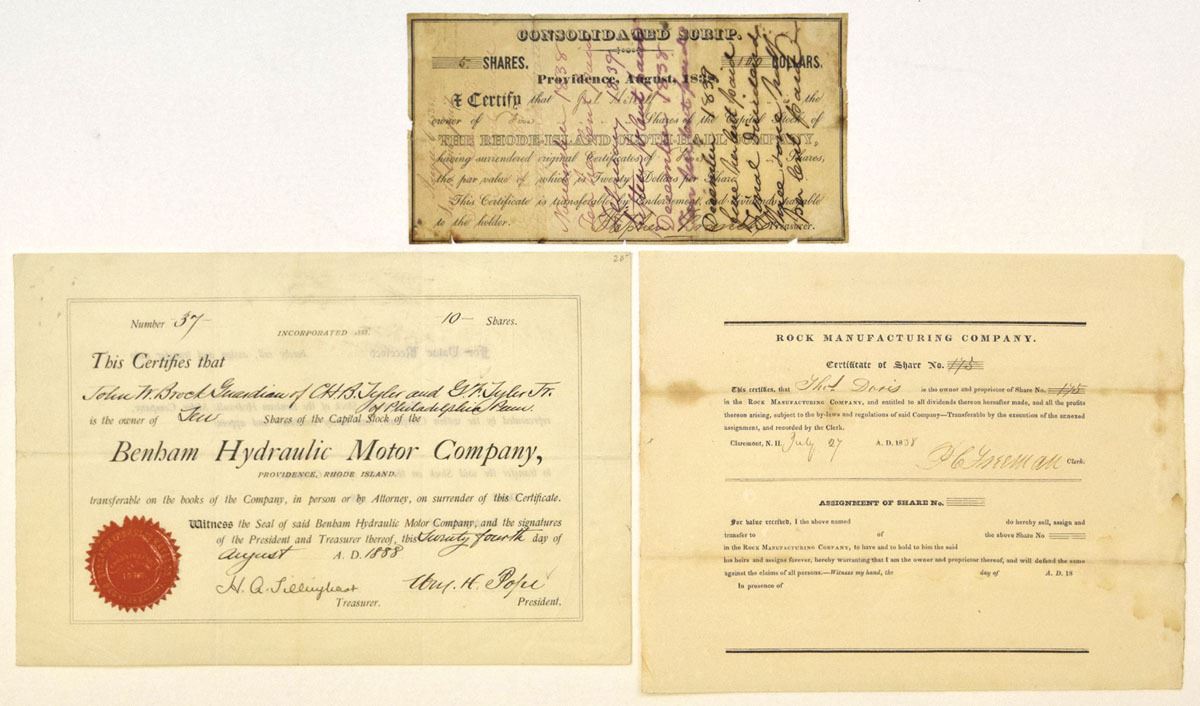 CONSOLIDATED SCRIP.
5 SHARES. 100 DOLLARS.
Providence, August, 183
I Certify that the
owner of Five Shares of the Capital Stock of
THE RHODE-ISLAND CLOTH-HALL COMPANY,
having surrendered original Certificates of Shares,
the par value of which is Twenty Dollars per Share.
This Certificate is transferable by Endorsement, and dividends payable
to the holder. Stephen Treasurer.
November 1838
February 1839
December 1838
December 1839
nine per cent paid
Final Dividend
three & one half
per Cent Paid
205
Number 37 10 Shares.
INCORPORATED
This Certifies that
John W. Brock Guardian of C.H.B. Tyler and G.F. Tyler Jr.
of Philadelphia Penn.
is the owner of Ten Shares of the Capital Stock of the
Benham Hydraulic Motor Company,
PROVIDENCE, RHODE ISLAND.
transferable on the books of the Company, in person or by Attorney, on surrender of this Certificate.
Witness the Seal of said Benham Hydraulic Motor Company, and the signatures
of the President and Treasurer thereof, this Twenty fourth day of
August A. D. 1888
H. A. Tillinghast Wm. H. Pope
Treasurer. President.
ROCK MANUFACTURING COMPANY.
Certificate of Share No. 175
This certifies, that Thos. Davis is the owner and proprietor of Share No. 175
in the ROCK MANUFACTURING COMPANY, and entitled to all dividends thereon hereafter made, and all the profits
thereon arising, subject to the by-laws and regulations of said Company—Transferable by the execution of the annexed
assignment, and recorded by the Clerk.
Claremont, N. H. July 27 A. D. 1838
P. C. Freeman Clerk.
ASSIGNMENT OF SHARE No.
For value received, I the above named do hereby sell, assign and
transfer to of the above Share No
in the ROCK MANUFACTURING COMPANY, to have and to hold to him the said
his heirs and assigns forever, hereby warranting that I am the owner and proprietor thereof, and will defend the same
against the claims of all persons.—Witness my hand, the day of A. D. 18
In presence of